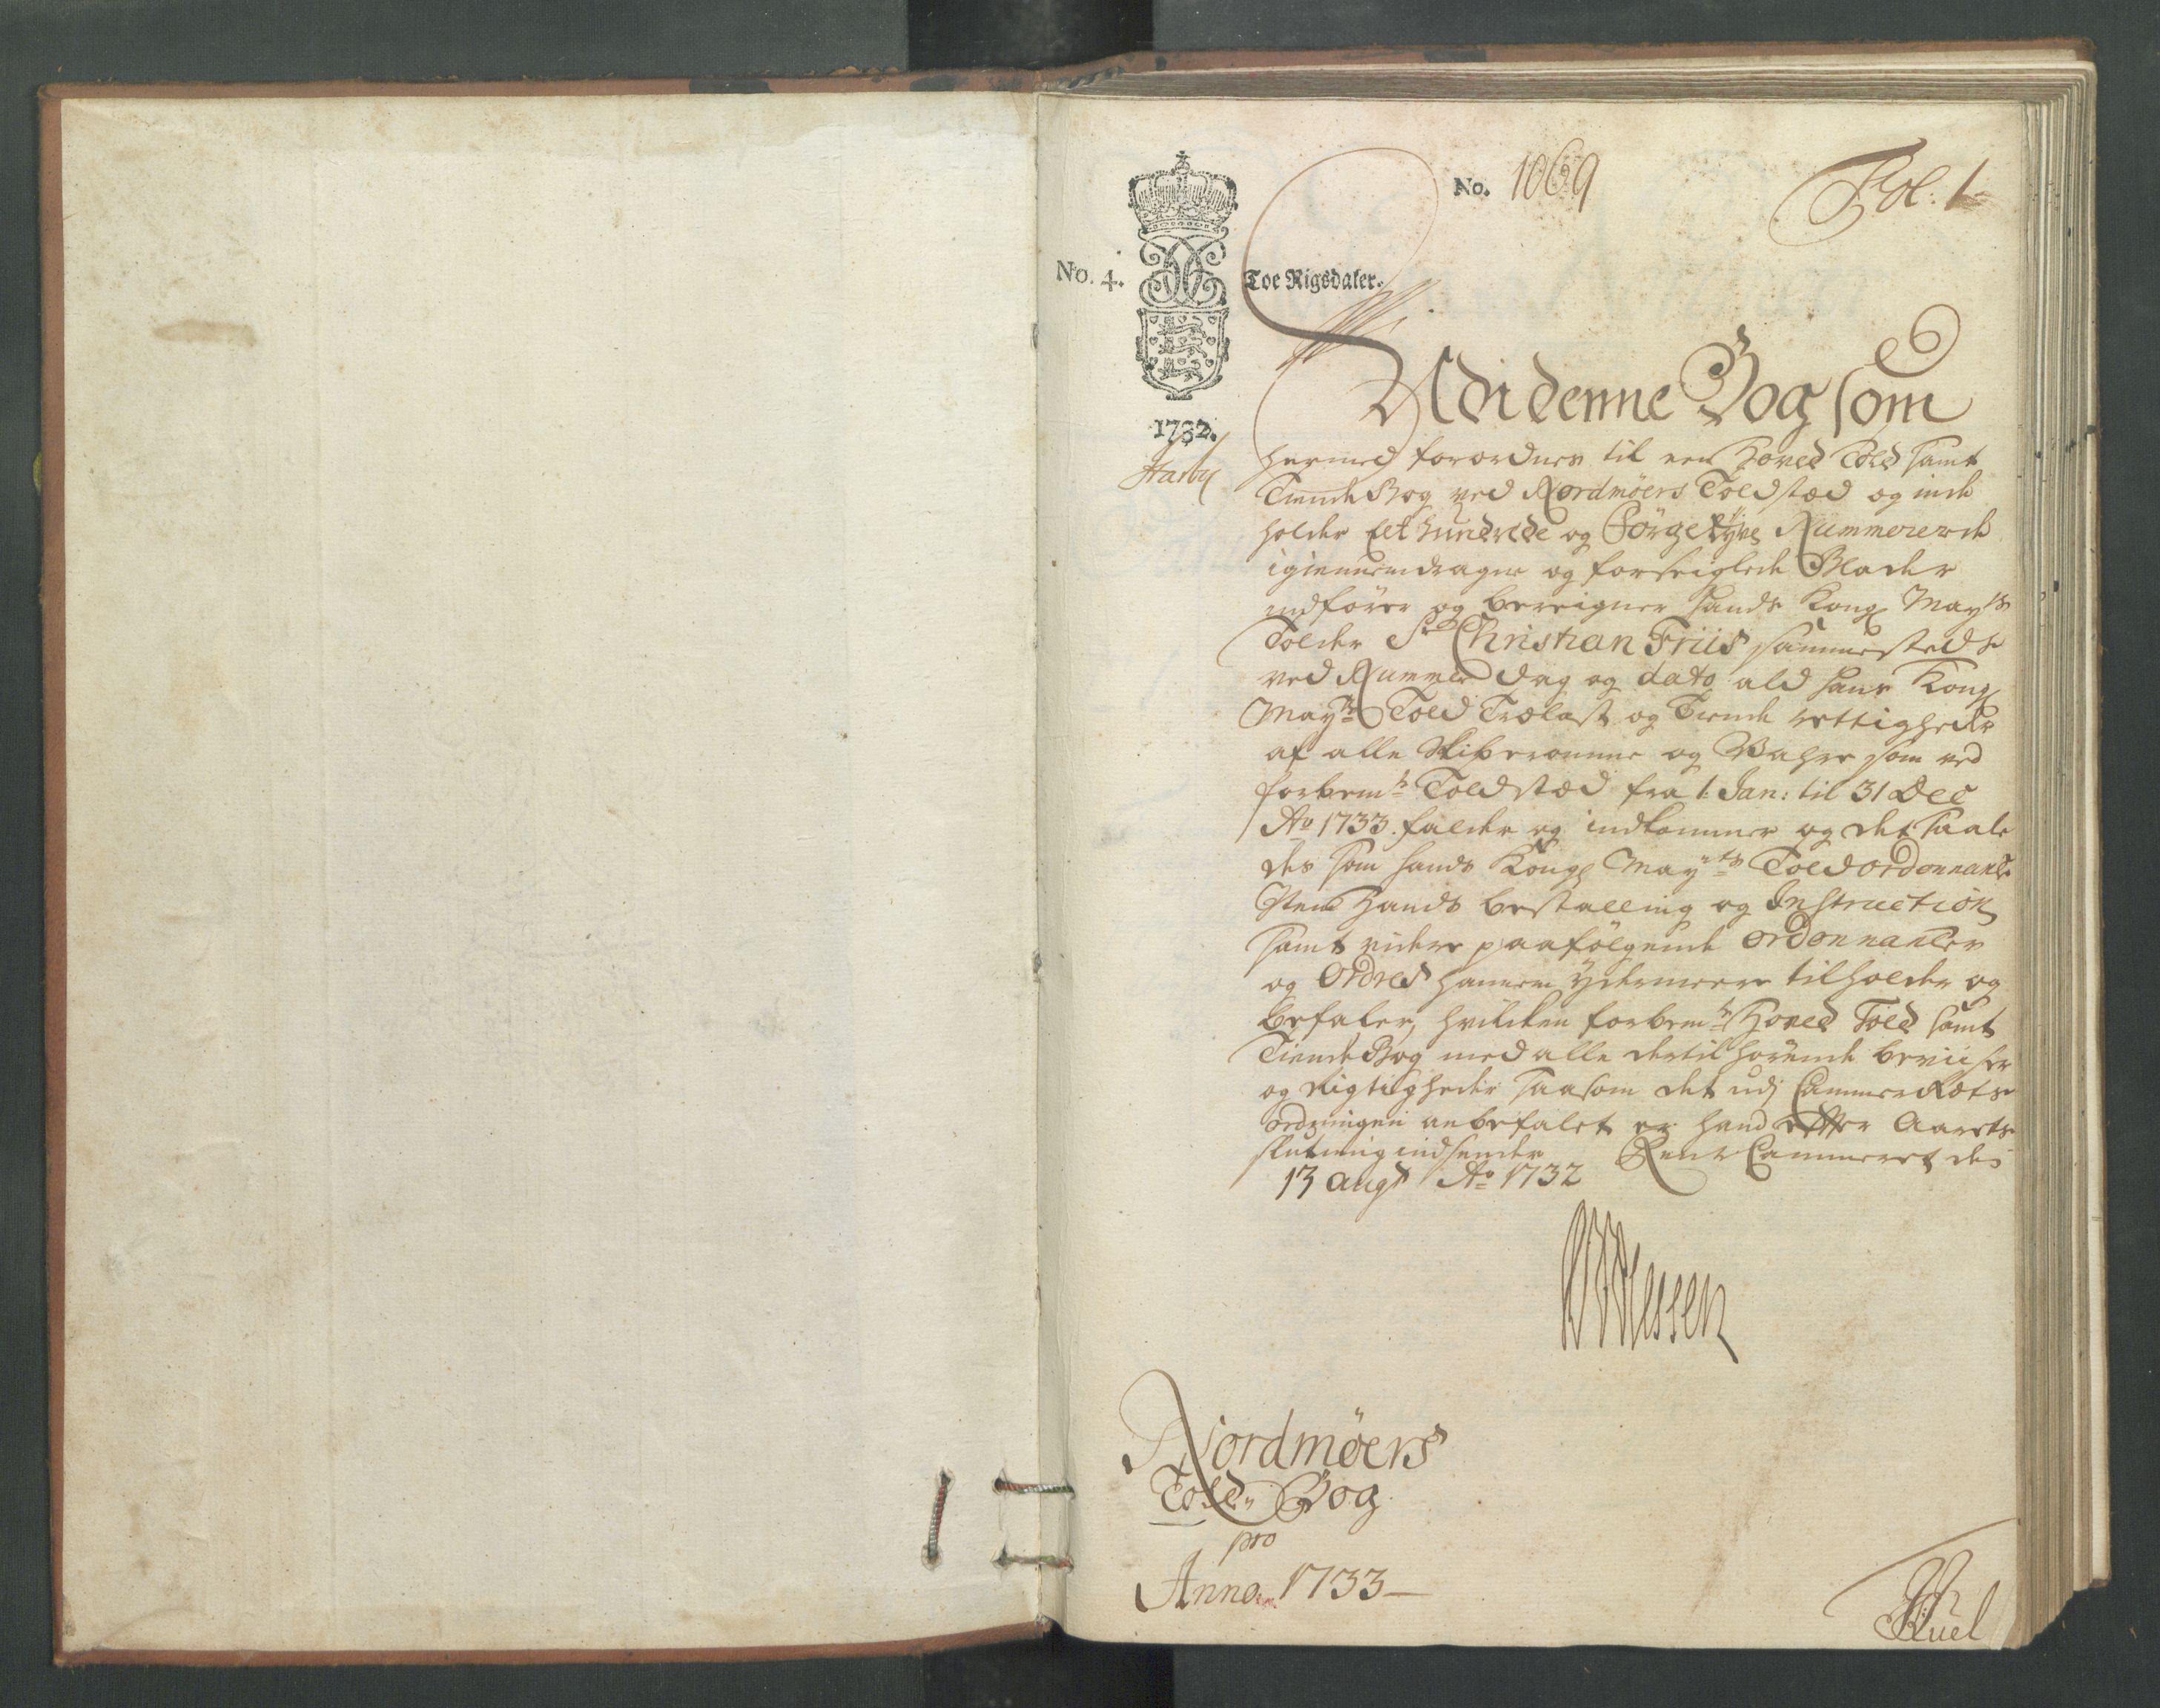 No. 1069
Fol: 1
No. 4.
Toe Rigsdaler.
1732.
Udi denne Bog som
hermed forordnes til een Hoved Told samt
Tiende Bog ved Nordmöers Toldstæd og inde
holder Eet hundrede og Förgetÿve Nummererede
igiennemdragne og forseiglede Blader
indförer og bereigner hands Kong: Mayts
Tolder Sr Christian Friis sammesteds
ved Nummer dag og dato ald hans Kong:
Mayts Told Trælast og Tiende rettigheder
af alle Skiberomme og Wahre som ved
forbemte Toldstæd fra 1. Jan: til 31 Dec
Ao 1733. falder og indkommer og det saale
des som hands Kongl Mayts Toldordonnantz
Item Hands bestalling og Instruction
samt videre paafölgende ordonnantzer
og Ordres hannem ÿdermeere tilholder og
befaler, hvilcken forbemte Hoved Told samt
Tiende Bog med alle dertil hörende beviiser
og Rigtigheder saasom det udj Cammer Rets
ordningen anbefalet er hand efter Aarets
slutning indsender Rente Cammeret des
13 augt Ao 1732
Nordmöers
Told- Bog
pro
Anno 1733